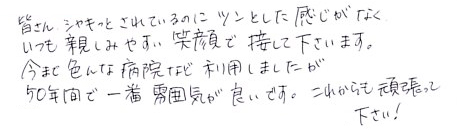 皆さん、シャキッとされているのにツンとした感じがなく
いつも親しみやすい笑顔で接して下さいます。
今まで色んな病院など利用しましたが
50年間で一番雰囲気が良いです。これからも頑張って
下さい!